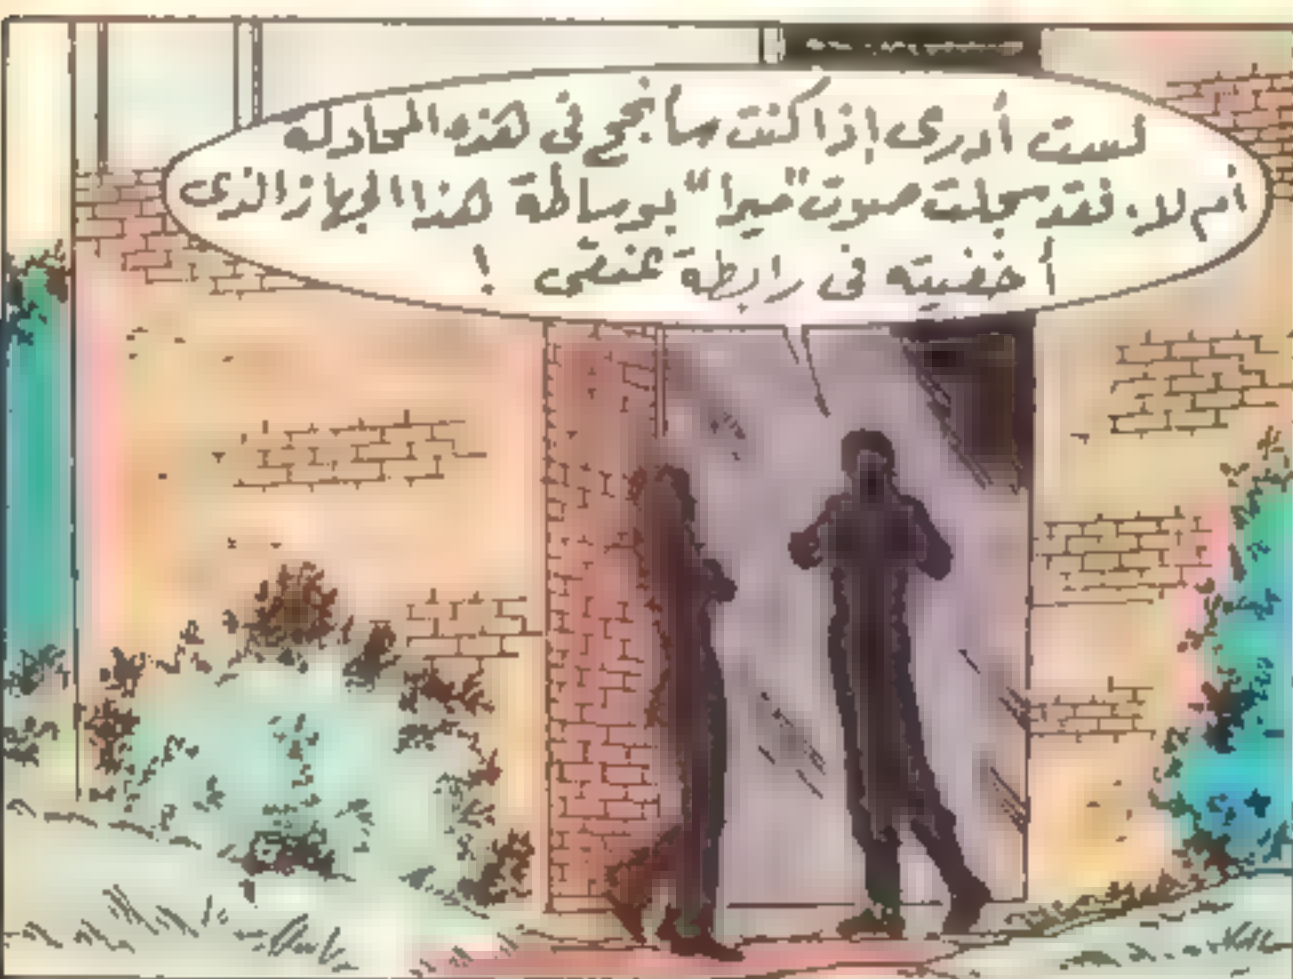 لست أدرى إذا كنت سأنجح فى هذه المحاولة
أم لا، فقد سجلت صوت "ميرا" بوساطة هذا الجهاز الذى
أخفيته فى رابطة عنقى !